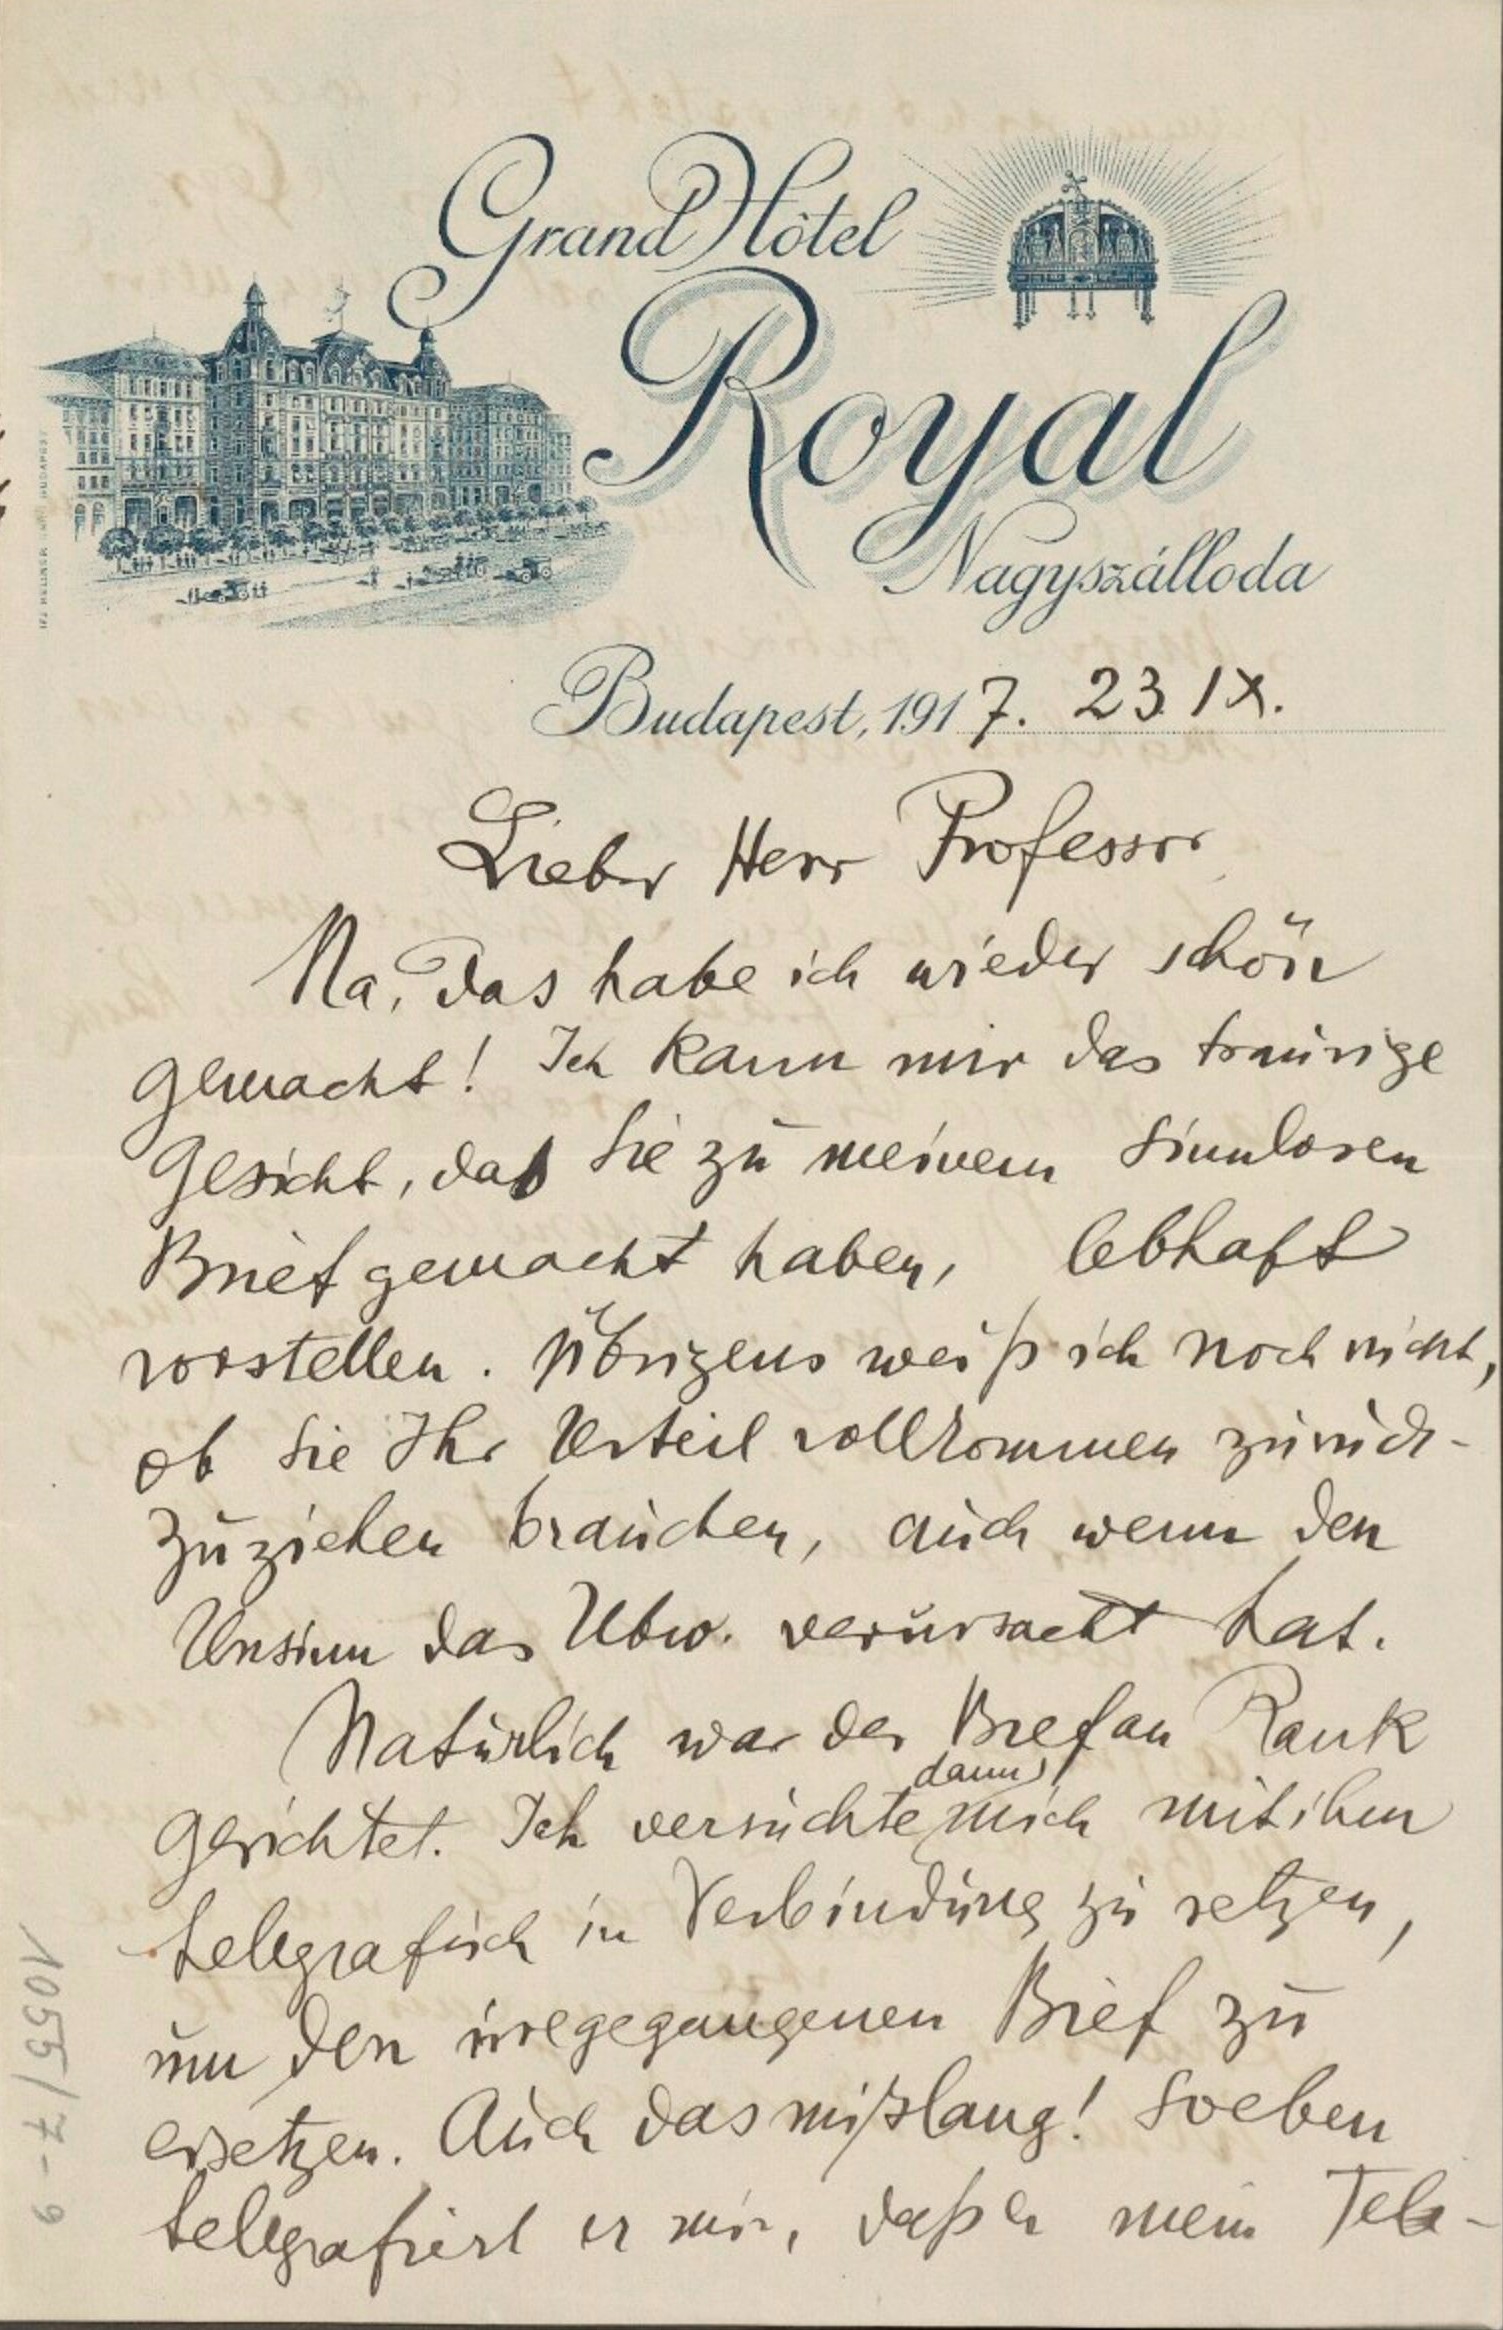 Grand Hôtel
Royal
Nagyszálloda
Budapest, 1917. 23. IX.
Lieber Herr Professor
Na, das habe ich wieder schön
gemacht! Ich kann mir das traurige
Gesicht, das Sie zu meinem sinnlosen
Brief gemacht haben, lebhaft
vorstellen. Übrigens weiß ich noch nicht,
ob Sie Ihr Urteil vollkommen zurück-
zuziehen brauchen, auch wenn den
Unsinn das Ubw. verursacht hat.
Natürlich war der Brief an Rank
dann
gerichtet. Ich versuchte mich mit ihm
telegrafisch in Verbindung zu setzen,
um den irregegangenen Brief zu
ersetzen. Auch das mißlang! Soeben
telegrafiert er mir, daß er mein Tele-
1055/7-9